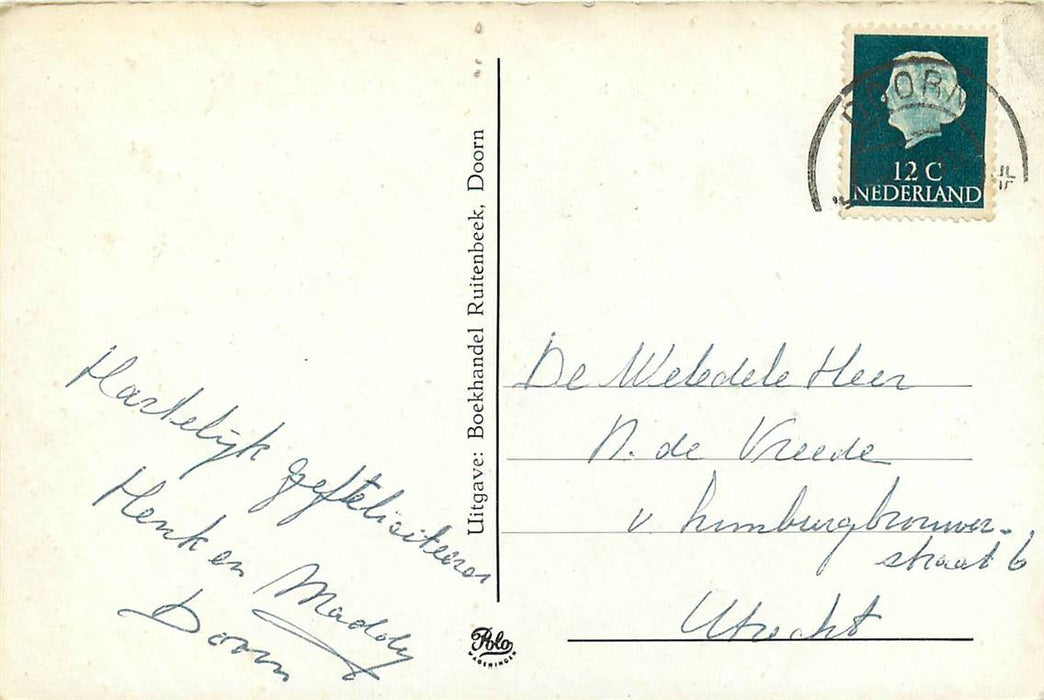 DOORN
12 C
NEDERLAND
Uitgave: Boekhandel Ruitenbeek, Doorn
Hartelijk gefeliciteerd
Henk en Maddy
Doorn
De Weledele Heer
N. de Vreede
v. Limburgbrouwer-
straat 6
Utrecht
Polo
WAGENINGEN